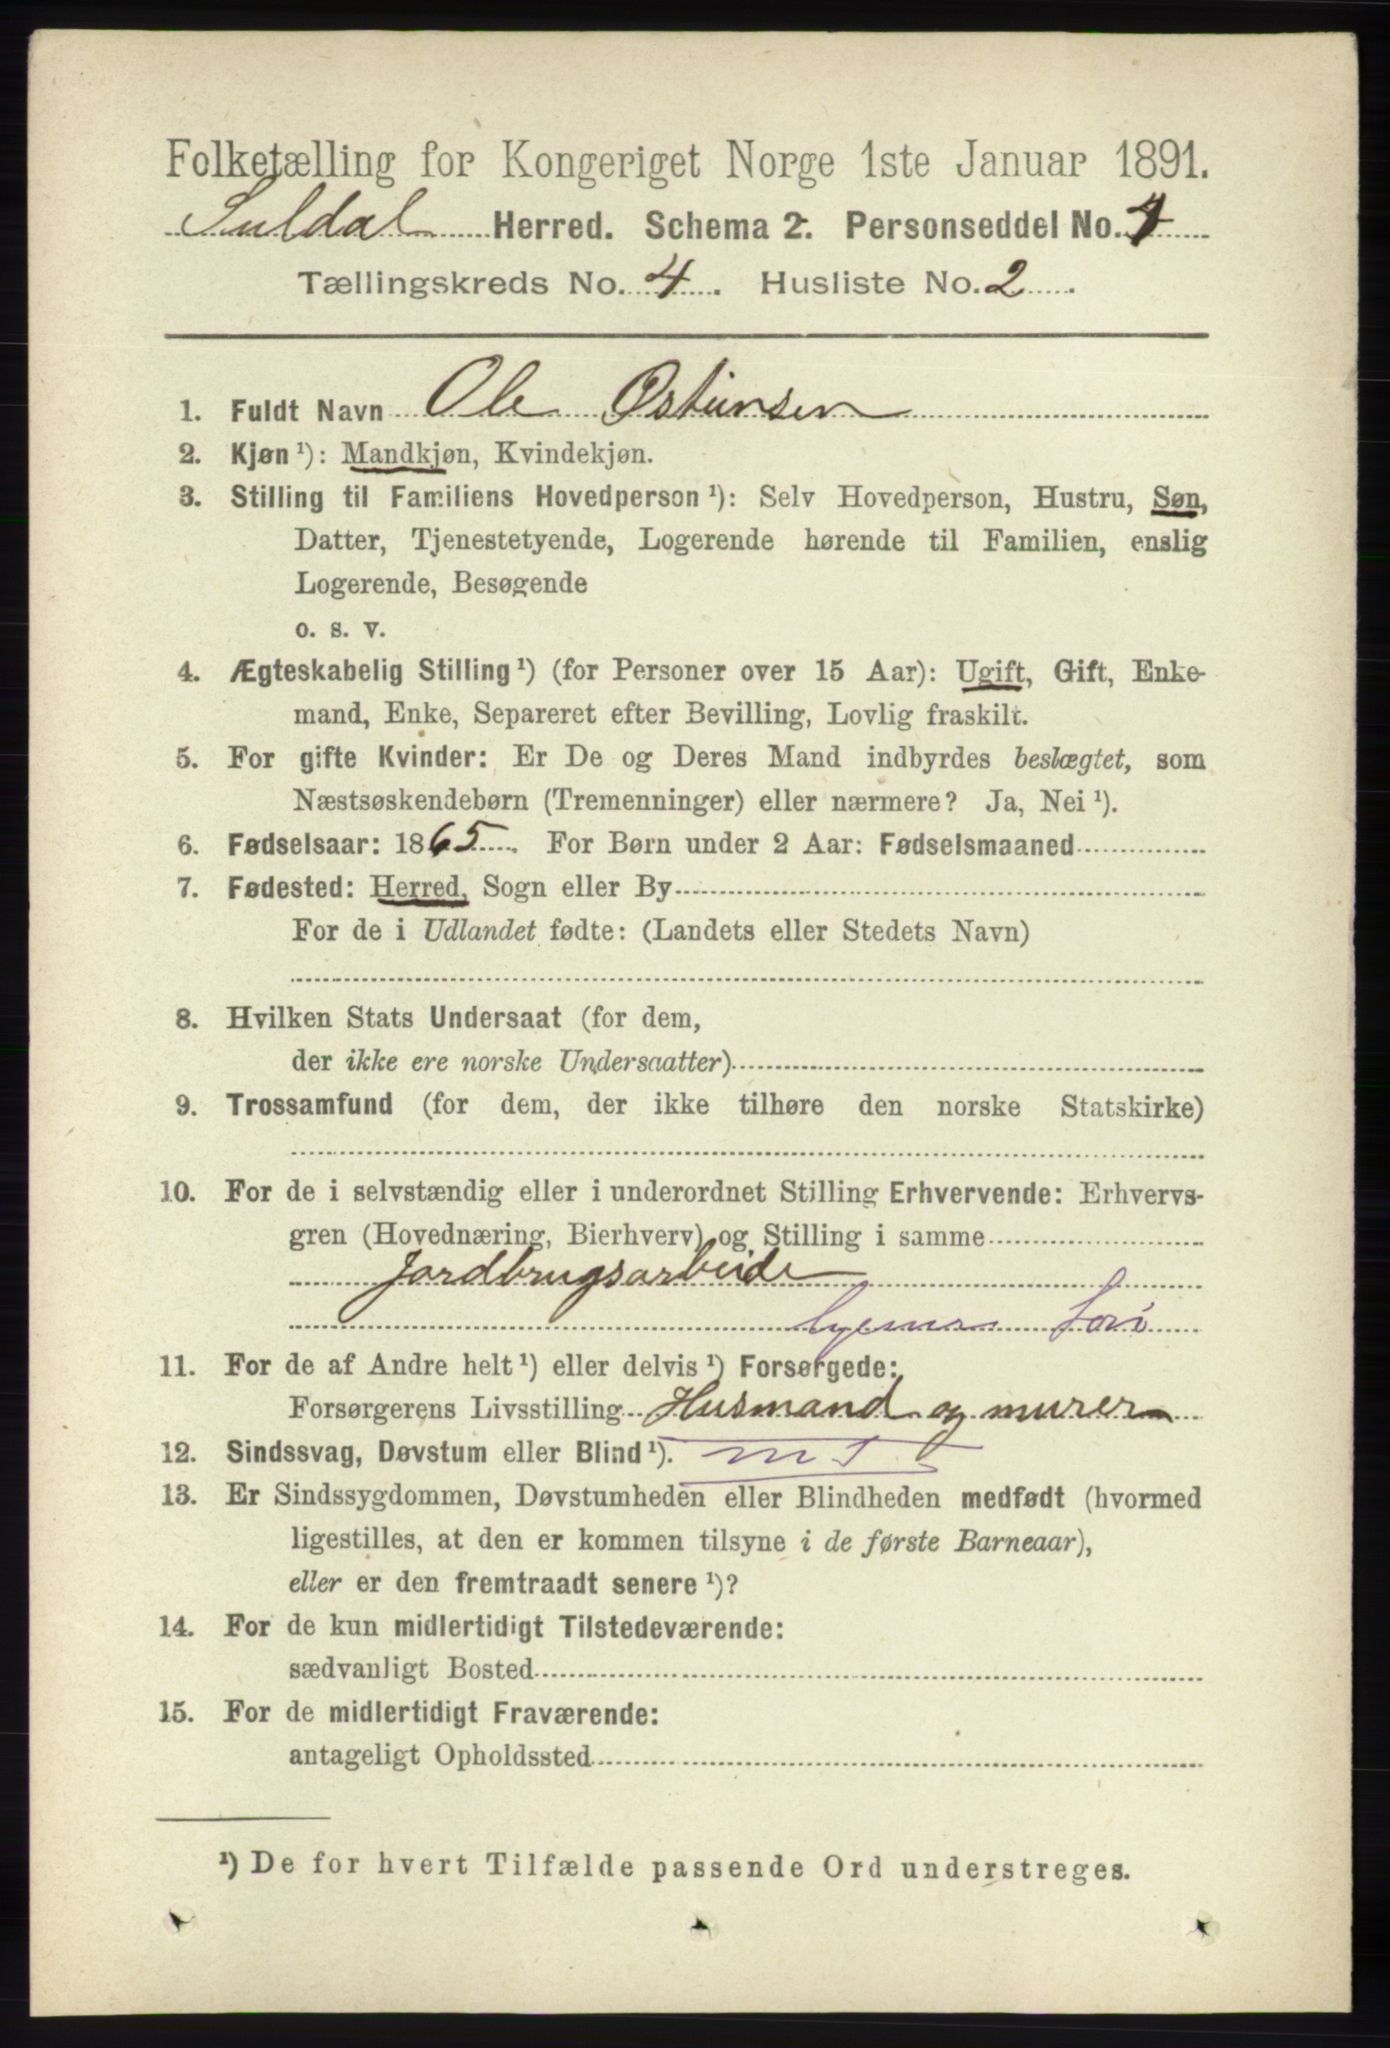 Folketælling for Kongeriget Norge 1ste Januar 1891.
Suldal Herred. Schema 2. Personseddel No.
Tællingskreds No. 4. Husliste No. 2.
1. Fuldt Navn Ole Østensen
2. Kjøn ¹): Mandkjøn, Kvindekjøn.
3. Stilling til Familiens Hovedperson ¹): Selv Hovedperson, Hustru, Søn,
Datter, Tjenestetyende, Logerende hørende til Familien, enslig
Logerende, Besøgende
o. s. v.
4. Ægteskabelig Stilling ¹) (for Personer over 15 Aar): Ugift, Gift, Enke-
mand, Enke, Separeret efter Bevilling, Lovlig fraskilt.
5. For gifte Kvinder: Er De og Deres Mand indbyrdes beslægtet, som
Næstsøskendebørn (Tremenninger) eller nærmere? Ja, Nei ¹).
6. Fødselsaar: 1865. For Børn under 2 Aar: Fødselsmaaned
7. Fødested: Herred, Sogn eller By
For de i Udlandet fødte: (Landets eller Stedets Navn)
8. Hvilken Stats Undersaat (for dem,
der ikke ere norske Undersaatter)
9. Trossamfund (for dem, der ikke tilhøre den norske Statskirke)
10. For de i selvstændig eller i underordnet Stilling Erhvervende: Erhvervs-
gren (Hovednæring, Bierhverv) og Stilling i samme
Jordbrugsarbeide
11. For de af Andre helt ¹) eller delvis ¹) Forsørgede:
Forsørgerens Livsstilling Husmand og murer
12. Sindssvag, Døvstum eller Blind ¹).
13. Er Sindssygdommen, Døvstumheden eller Blindheden medfødt (hvormed
ligestilles, at den er kommen tilsyne i de første Barneaar),
eller er den fremtraadt senere ¹)?
14. For de kun midlertidigt Tilstedeværende:
sædvanligt Bosted
15. For de midlertidigt Fraværende:
antageligt Opholdssted
¹) De for hvert Tilfælde passende Ord understreges.